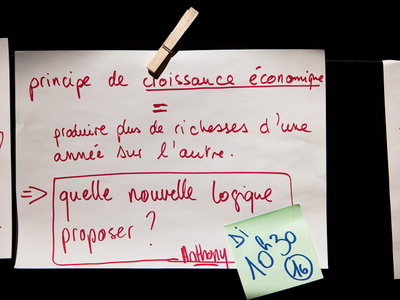 principe de croissance économique
=
produire plus de richesses d'une
année sur l'autre.
⇒ quelle nouvelle logique
proposer ?
Anthony
Di
10h30
16